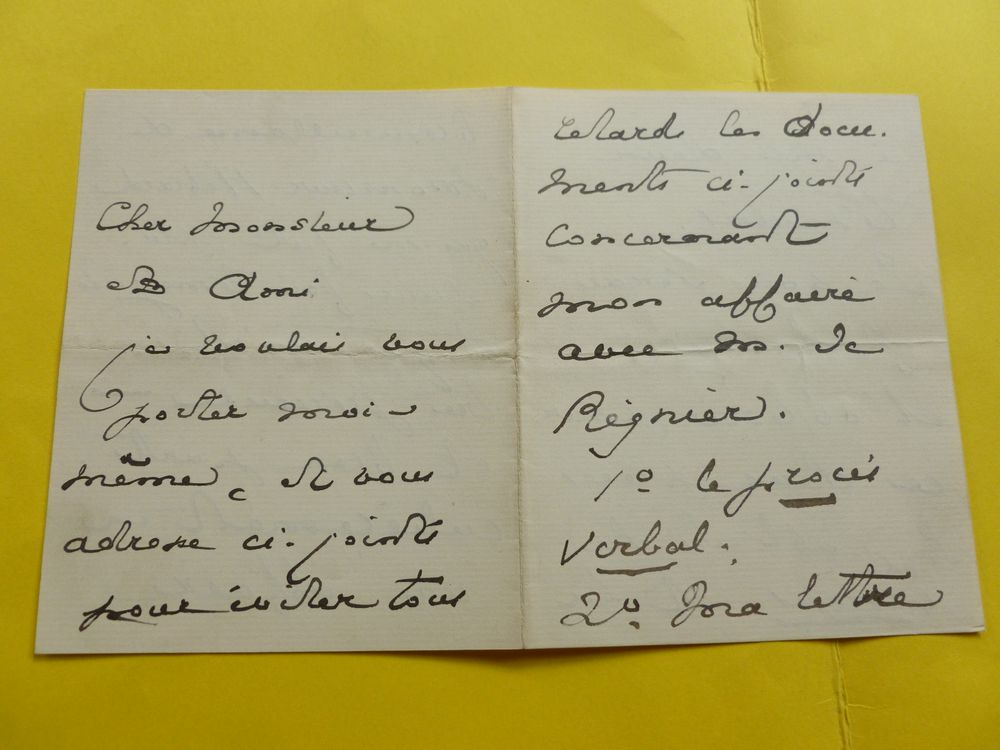 Cher Monsieur
et Ami
je voulais vous
porter moi-
même, et vous
adresse ci-joints
pour éviter tous
retards les docu-
ments ci-joints
concernant
mon affaire
avec M. de
Régnier.
1º le procès
verbal.
2º ma lettre